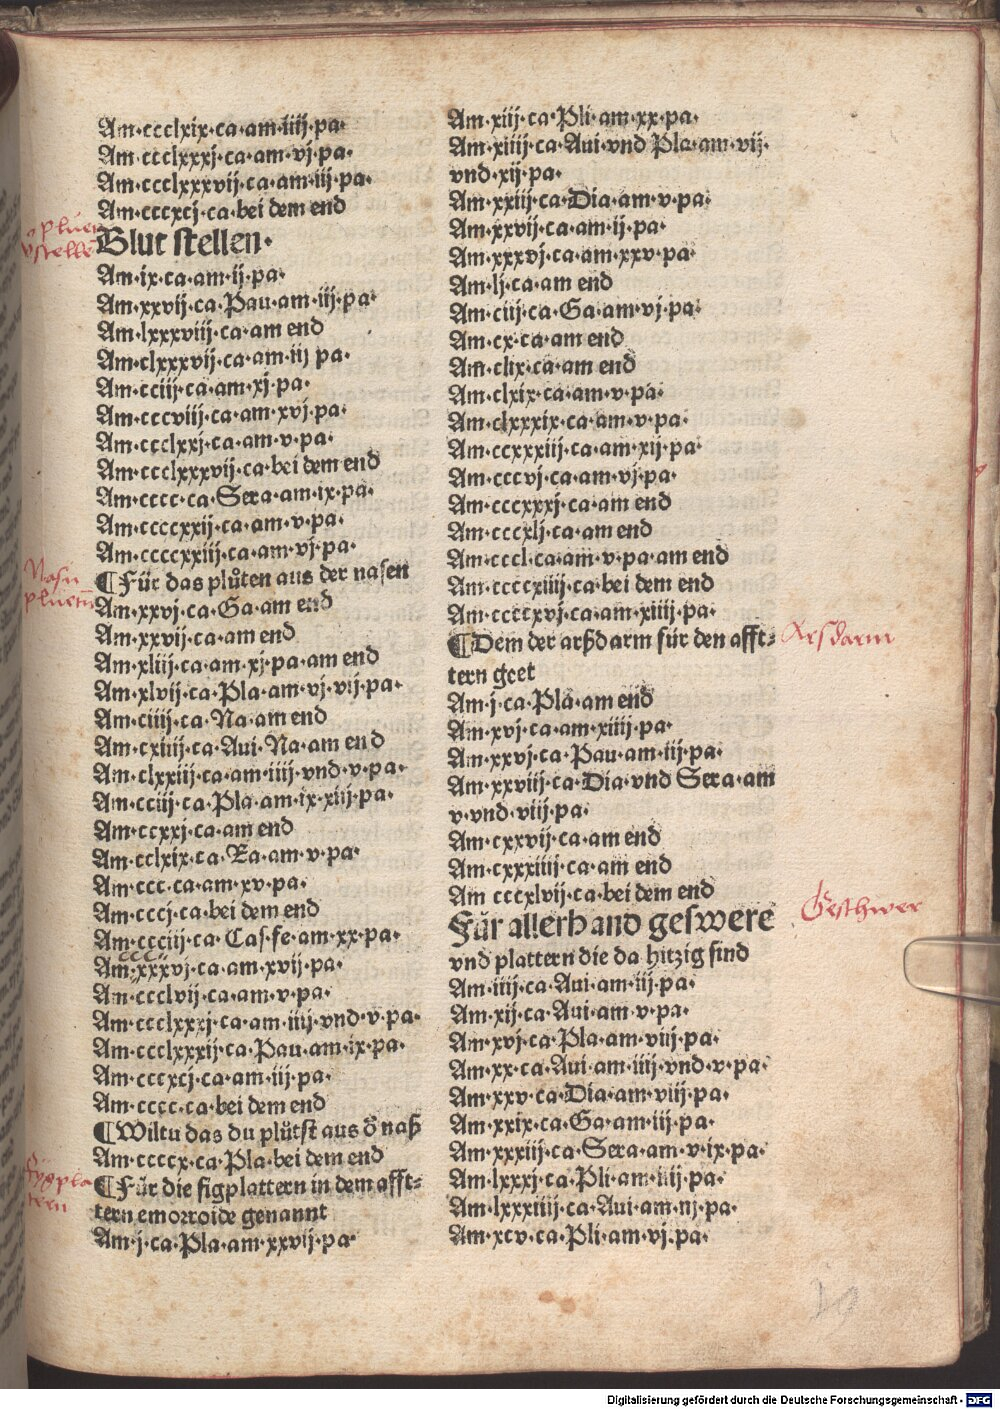 Am·ccclxix·ca·am·iiij·pa·
Am·ccclxxxj·ca·am·vj·pa·
Am·ccclxxxvij·ca·am·iij·pa·
Am·cccxcj·ca·bei dem end
Blut stellen·
Am·ix·ca·am·ij·pa·
Am·xxvij·ca·Pau·am·iij·pa·
Am·lxxxviij·ca·am end
Am·clxxxvij·ca·am·iij pa·
Am·cciij·ca·am·xj·pa·
Am·cccviij·ca·am·xvj·pa·
Am·ccclxxj·ca·am·v·pa·
Am·ccclxxxvij·ca·bei dem end
Am·cccc·ca·Sera·am·ix·pa·
Am·ccccxxij·ca·am·v·pa·
Am·ccccxxiij·ca·am·vj·pa·
¶Für das plůten aus der nasen
Am·xxvj·ca·Ga·am end
Am·xxvij·ca·am end
Am·xliij·ca·am·xj·pa·am end
Am·xlvij·ca·Pla·am·vj·vij·pa·
Am·ciiij·ca·Na·am end
Am·cxiiij·ca·Aui·Na·am end
Am·clxxiij·ca·am·iiij·vnd·v·pa·
Am·cciij·ca·Pla·am·ix·xiij·pa·
Am·ccxxj·ca·am end
Am·cclxix·ca·Ra·am·v·pa·
Am·ccc·ca·am·xv·pa·
Am·cccj·ca·bei dem end
Am·ccciij·ca·Casfe·am·xx·pa·
cccc
Am·xxxvj·ca·am·xvij·pa·
Am·ccclvij·ca·am·v·pa·
Am·ccclxxxj·ca·am·iiij·vnd·v·pa·
Am·ccclxxxij·ca·Pau·am·ix·pa·
Am·cccxcj·ca·am·iij·pa·
Am·cccc·ca·bei dem end
¶Wiltu das du plůtst aus d̕ naß
Am·ccccx·ca·Pla·bei dem end
¶Für die figplattern in dem afft⸗
tern emorroide genannt
Am·j·ca·Pla·am·xxvij·pa·
Am·xiij·ca·Pli·am·xx·pa·
Am·xiiij·ca·Aui·vnd Pla·am·vij·
vnd·xij·pa·
Am·xxiij·ca·Dia·am·v·pa·
Am·xxvij·ca·am·ij·pa·
Am·xxxvj·ca·am·xxv·pa·
Am·lj·ca·am end
Am·ciij·ca·Ga·am·vj·pa·
Am·cx·ca·am end
Am·clix·ca·am end
Am·clxix·ca·am·v·pa·
Am·clxxxix·ca·am·v·pa·
Am·ccxxxiij·ca·am·xij·pa·
Am·cccvj·ca·am·vj·pa·
Am·cccxxxj·ca·am end
Am·cccxlj·ca·am end
Am·cccl·ca·am·v·pa·am end
Am·ccccxiiij·ca·bei dem end
Am·ccccxvj·ca·am·xiiij·pa·
¶Dem der arßdarm für den afft⸗
tern geet
Am·j·ca·Pla·am end
Am·xvj·ca·am·xiiij·pa·
Am·xxvj·ca·Pau·am·iij·pa·
Am·xxviij·ca·Dia·vnd Sera·am
v·vnd·viij·pa·
Am·cxxvij·ca·am end
Am·cxxxiiij·ca·am end
Am cccxlvij·ca·bei dem end
Für allerhand geswere
vnd plattern die da hitzig sind
Am·iiij·ca·Aui·am·iij·pa·
Am·xij·ca·Aui·am·v·pa·
Am·xvj·ca·Pla·am·viij·pa·
Am·xx·ca·Aui·am·iiij·vnd·v·pa·
Am·xxv·ca·Dia·am·viij·pa·
Am·xxix·ca·Ga·am·iij·pa·
Am·xxxiij·ca·Sera·am·v·ix·pa·
Am·lxxxj·ca·Pli·am·iiij·pa·
Am·lxxxiiij·ca·Aui·am·iij·pa·
Am·xcv·ca·Pli·am·vj·pa·
Nasn
pluetn̄
Arsdarm
Gesthwer
fygpla
tern
19
Digitalisierung gefördert durch die Deutsche Forschungsgemeinschaft - DFG